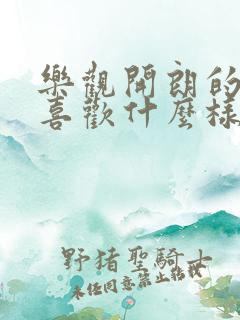 樂觀開朗的
喜歡什麼樣
野猪聖騎士
未任同意禁止轉載